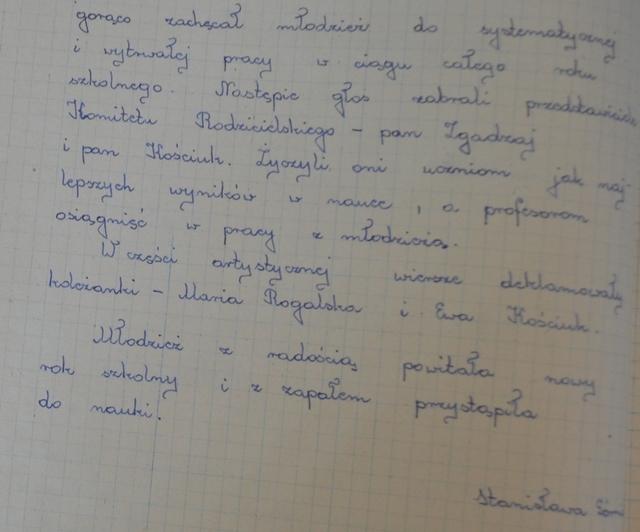 gorąco zachęcał młodzież do systematycznej
i wytrwałej pracy w ciągu całego roku
szkolnego. Następie głos zabrali
Komitetu Rodzicielskiego - pan Zgadzaj
i pan Kościuk. Życzyli oni uczniom jak naj
lepszych wyników w nauce, a profesorom
osiągnięć w pracy z młodzieżą.
W części artystycznej wiersze deklamowały
koleżanki - Maria Rogalska i Ewa Kościuk.
Młodzież z radością powitała nowy
rok szkolny i z zapałem przystąpiła
do nauki.
Stanisława